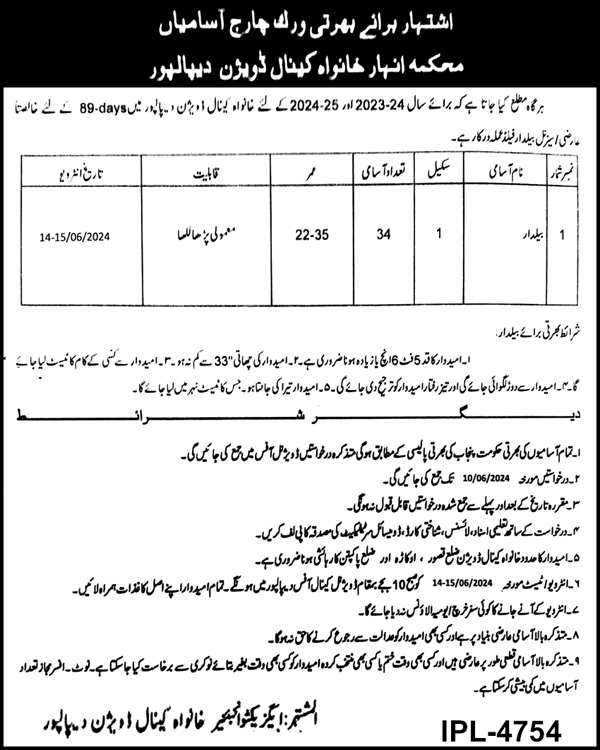 اشتہار برائے بھرتی ورک چارج آسامیاں
محکمہ انہار خانواہ کینال ڈویژن دیپالپور
ہرگاہ مطلع کیا جاتا ہے کہ برائے سال 24-2023 اور 25-2024 کے لئے خانواہ کینال ڈویژن دیپالپور میں 89-days کے لئے خالصتاً
عارضی/سیزنل بیلدار فیلڈ عملہ درکار ہے۔
نمبر شمار نام آسامی سکیل تعداد آسامی عمر قابلیت تاریخ انٹرویو
1 بیلدار 1 34 22-35 معمولی پڑھا لکھا 14-15/06/2024
شرائط بھرتی برائے بیلدار:
۱۔ امیدوار کا قد 5 فٹ 6 انچ یا زیادہ ہونا ضروری ہے۔ ۲۔ امیدوار کی چھاتی "33 سے کم نہ ہو۔ ۳۔ امیدوار سے کسی کے کام کا ٹیسٹ لیا جائے
گا۔ ۴۔ امیدوار سے دوڑ لگوائی جائے گی اور تیز رفتار امیدوار کو ترجیح دی جائے گی۔ ۵۔ امیدوار تیرا کی جانتا ہو۔ جس کا ٹیسٹ نہر میں لیا جائے گا۔
دیگر شرائط
۱۔ تمام آسامیوں کی بھرتی حکومت پنجاب کی بھرتی پالیسی کے مطابق ہوگی متذکرہ درخواستیں ڈویژنل آفس میں جمع کی جائیں گی۔
۲۔ درخواستیں مورخہ 10/06/2024 تک جمع کی جائیں گی۔
۳۔ مقررہ تاریخ کے بعد اور پہلے سے جمع شدہ درخواستیں قابل قبول نہ ہونگی۔
۴۔ درخواست کے ساتھ تعلیمی اسناد، لائسنس، شناختی کارڈ، ڈومیسائل سرٹیفکیٹ کی مصدقہ کاپی لف کریں۔
۵۔ امیدوار کا حدود خانواہ کینال ڈویژن ضلع قصور، اوکاڑہ اور ضلع پاکپتن کا رہائشی ہونا ضروری ہے۔
۶۔ انٹرویو/ٹیسٹ مورخہ 14-15/06/2024 کو صبح 10 بجے بمقام ڈویژنل کینال آفس دیپالپور میں ہونگے۔ تمام امیدوار اپنے اصل کاغذات ہمراہ لائیں۔
۷۔ انٹرویو کے آنے جانے کا کوئی سفر خرچ/یومیہ الاؤنس نہ دیا جائے گا۔
۸۔ متذکرہ بالا آسامی عارضی بنیاد پر ہے اور کسی بھی امیدوار کو عدالت سے رجوع کرنے کا حق نہ ہوگا۔
۹۔ متذکرہ بالا آسامی قطعی طور پر عارضی ہیں اور کسی بھی وقت ختم یا کسی بھی منتخب کردہ امیدوار کو کسی بھی وقت بغیر بتائے نوکری سے برخاست کیا جا سکتا ہے۔ نوٹ۔ افسر مجاز تعداد
آسامیوں میں کمی بیشی کر سکتا ہے۔
المشتہر: ایگزیکٹو انجینئر خانواہ کینال ڈویژن دیپالپور
IPL-4754